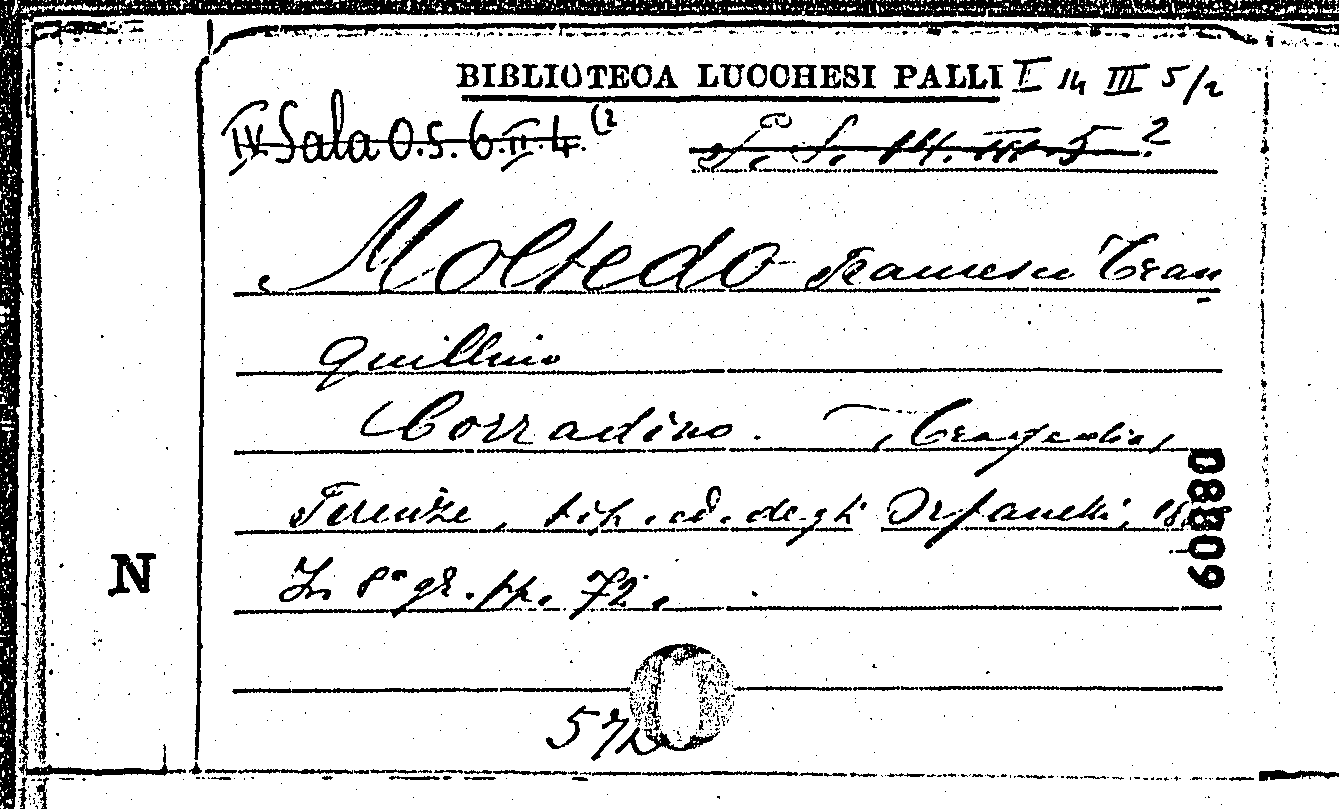 BIBLIOTECA LUCCHESI PALLI I 14 III 5/2
IV. Sala O.S. 6. II. 4. (2
S. S. 14. III. 5. 2
Moltedo Francesco Tran
quillino
Corradino. Tragedia,
Firenze, tip. ed. degli Orfanelli,
In 8° gr. pp. 72.
60880
N